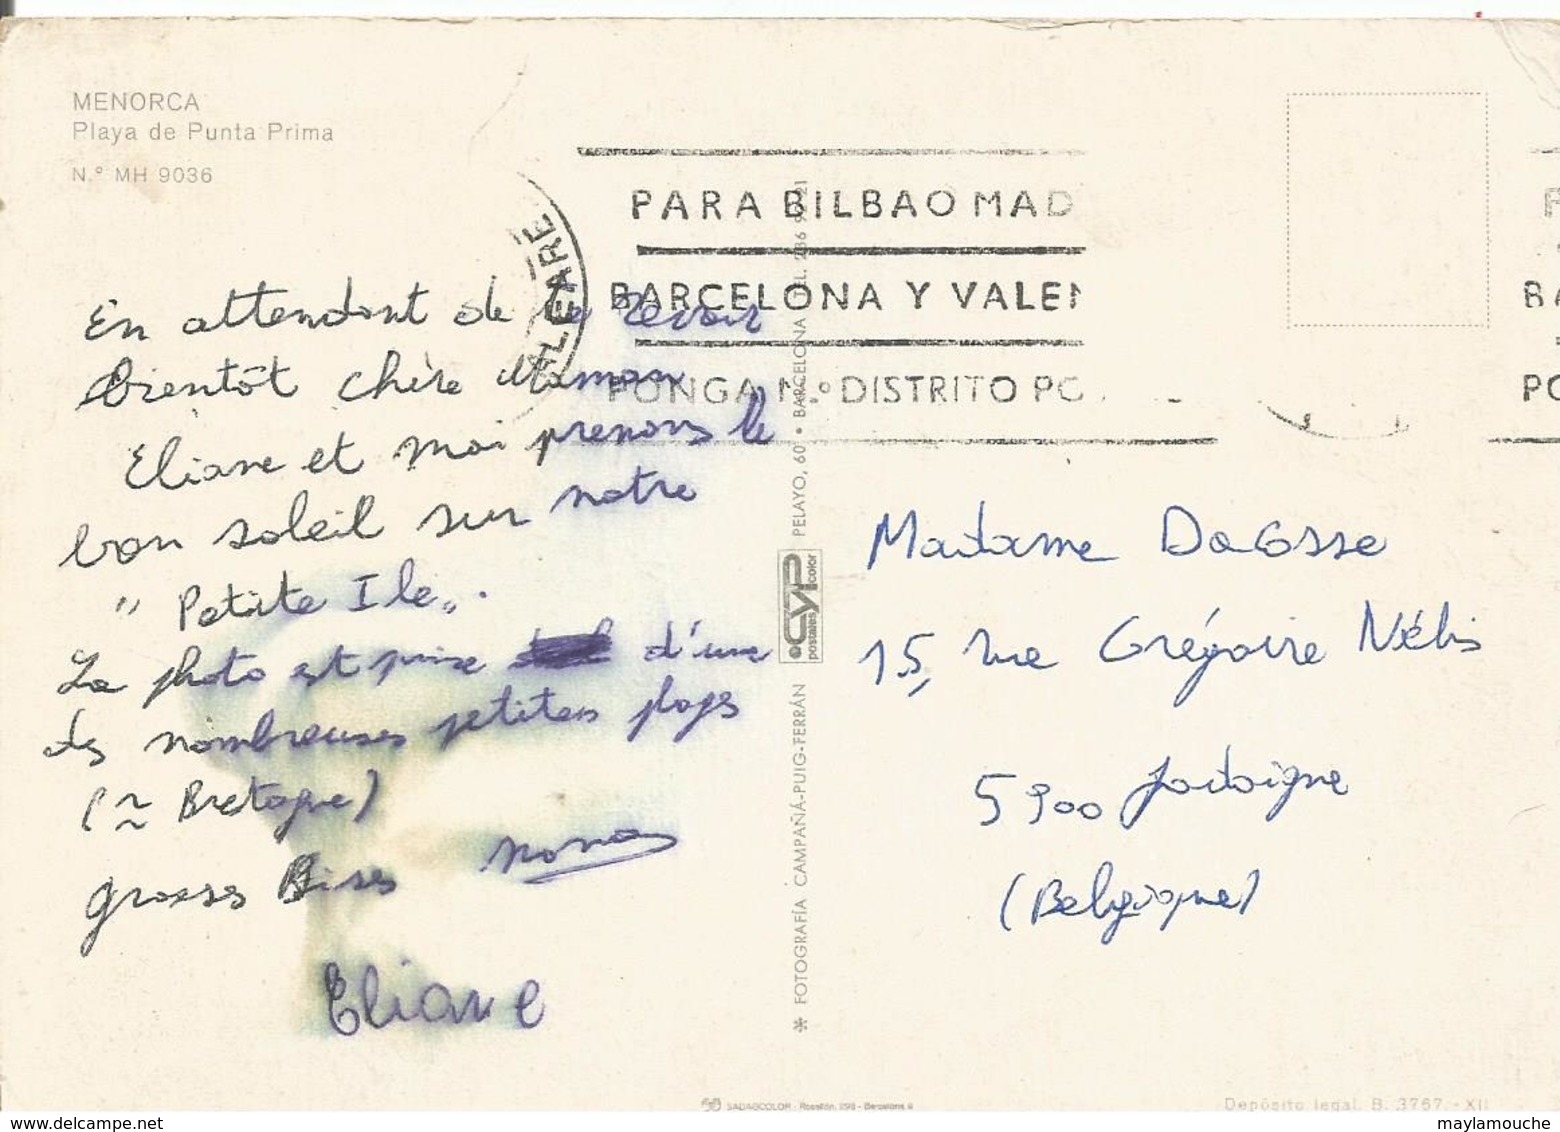 MENORCA
Playa de Punta Prima
N.° MH 9036
PARA BILBAO MAD
BARCELONA Y VALEN
PONGA N.° DISTRITO PO
LEARE
En attendant de te revoir
bientôt chère Maman
Eliane et moi prenons le
bon soleil sur notre
" Petite Ile ".
La photo est prise d'une
des nombreuses petites plages
(≈ Bretagne)
grosses Bises Nono
Eliane
* FOTOGRAFÍA CAMPAÑÁ-PUIG-FERRÁN
CYP
postales color
PELAYO, 60 • BARCELONA
Madame
15, rue Grégoire Nélis
5900 Jodoigne
(Belgique)
SADAGCOLOR - Rosellón, 298 - Barcelona
Depósito legal. B. 3767.-XII
maylamouche